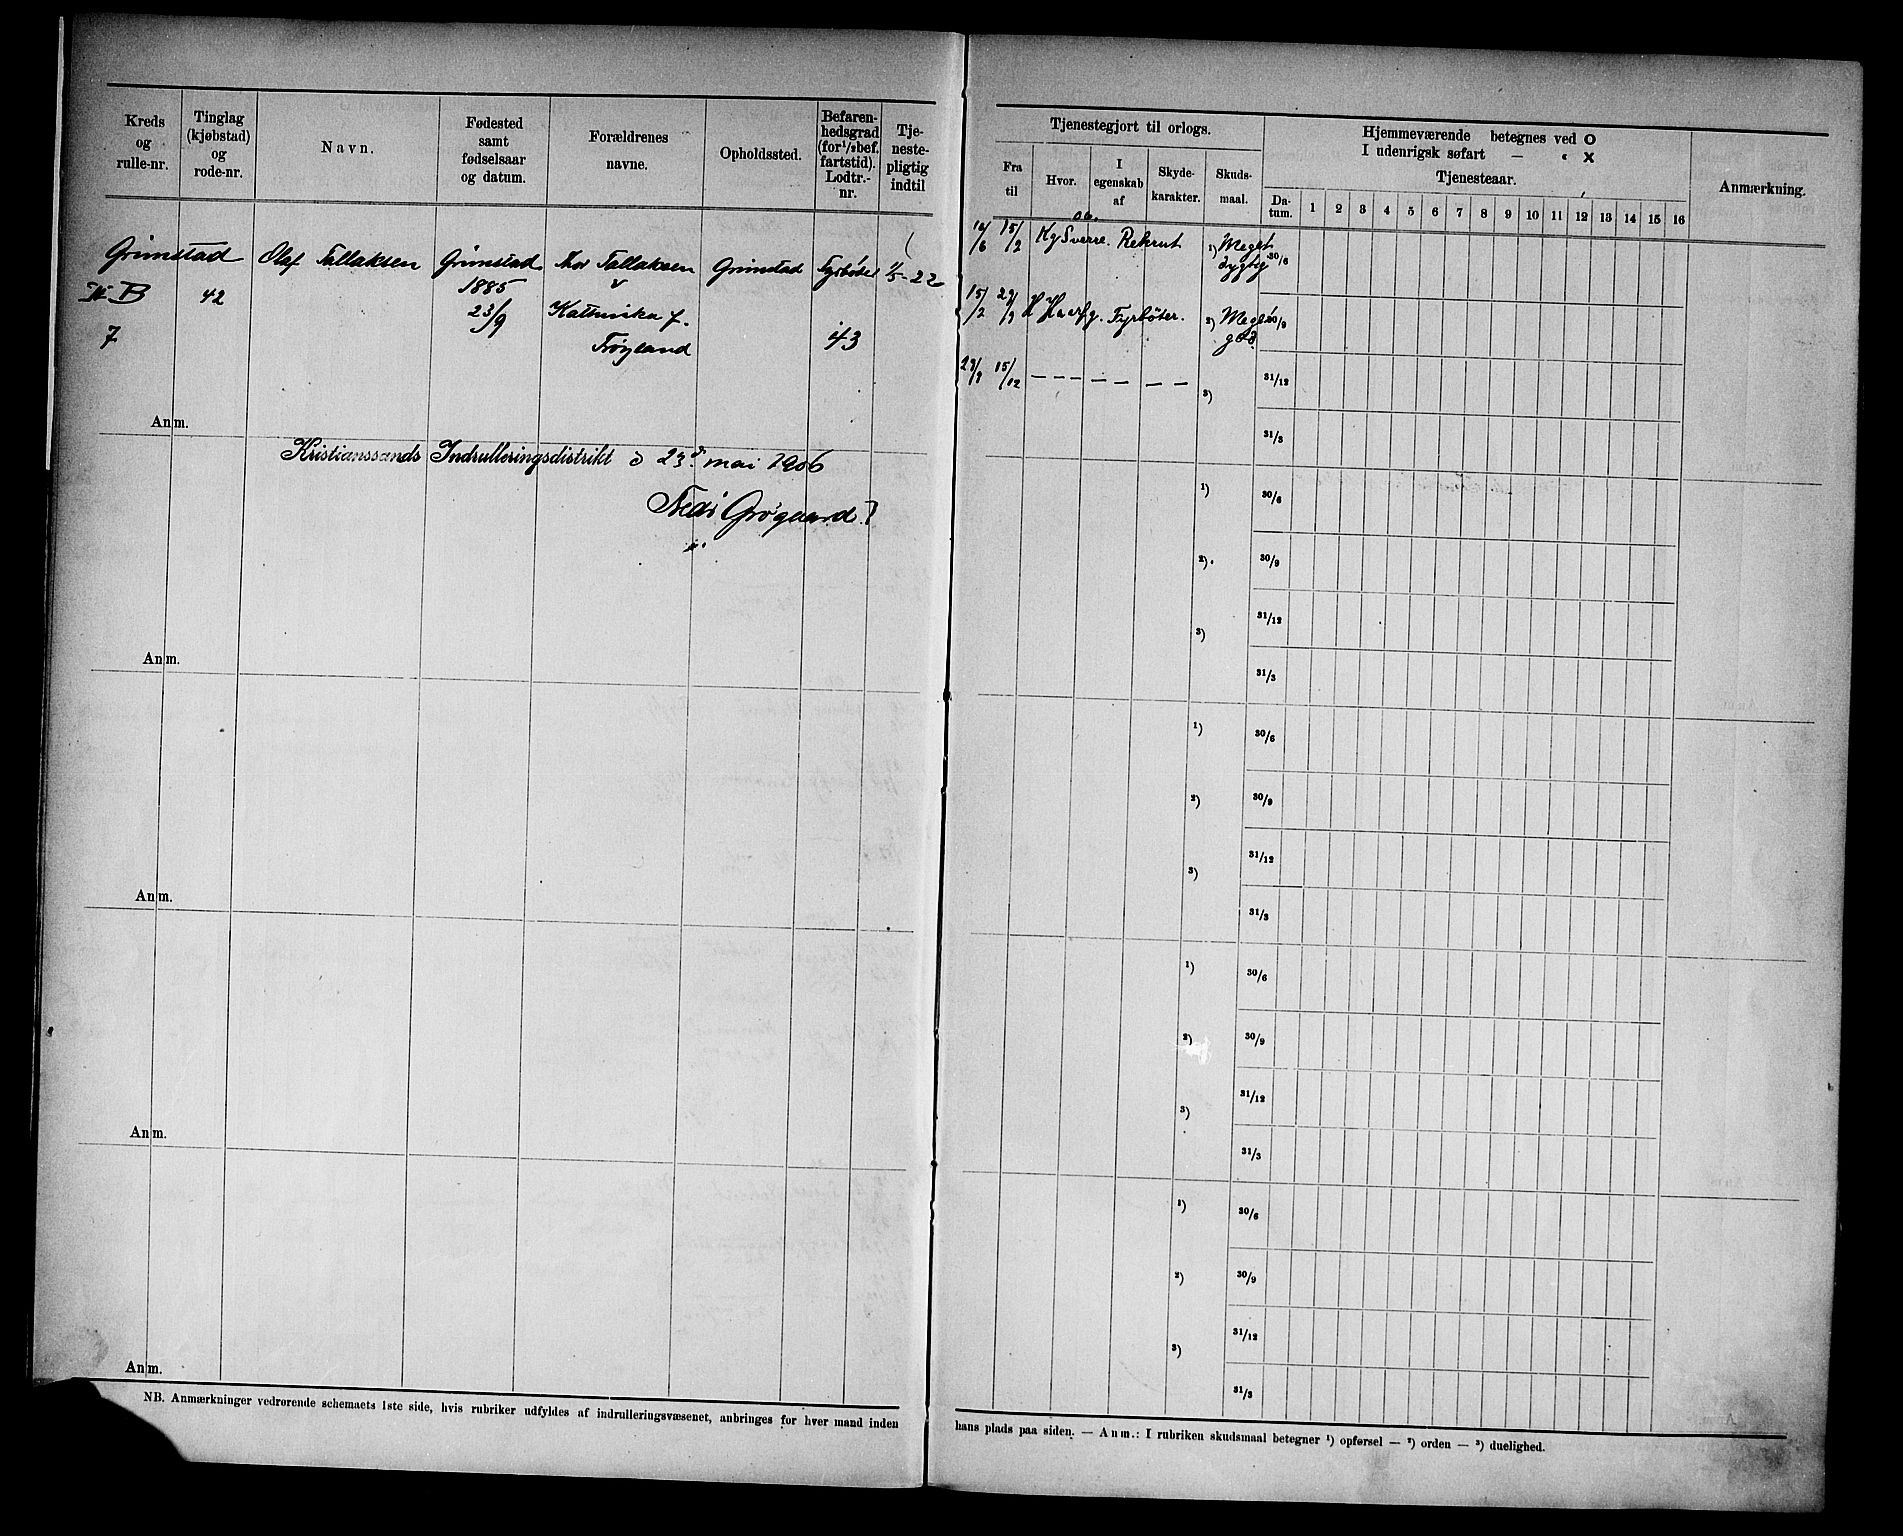 Kreds og rulle-nr.
Tinglag (kjøbstad) og rode-nr.
Navn.
Fødested samt fødselsaar og datum.
Forældrenes navne.
Opholdssted.
Befarenhedsgrad (for 1/2bef. fartstid). Lodtr.-nr.
Tjenestepligtig indtil
Grimstad
Olaf Tallaksen
Grimstad
Tallaksen
Grimstad
Fyrbøter
- 22
B
42
1885
23/9
7
Frøyland
43
Anm.
Kristianssands Indrulleringsdistrikt d 23d mai 1906
Grøgaard
Anm.
Anm.
Anm.
Anm.
NB. Anmærkninger vedrørende schemaets 1ste side, hvis rubriker udfyldes af indrulleringsvæsenet, anbringes for hver mand inden
Tjenestegjort til orlogs.
Hjemmeværende betegnes ved O
I udenrigsk søfart — " X
Tjenesteaar.
Anmærkning.
Fra til
Hvor.
I egenskab af
Skydekarakter.
Skudsmaal.
Datum.
1 2 3 4 5 6 7 8 9 10 11 12 13 14 15 16
06.
15/2 Kg Sverre. Rekrut 1) Meget dygtig 30/6
15/2 Fyrbøter. 2) Meget god 30/9
15/12 — — — — — — — 3) 31/12
31/3
1) 30/6
2) 30/9
3) 31/12
31/3
1) 30/6
2) 30/9
3) 31/12
31/3
1) 30/6
2) 30/9
3) 31/12
31/3
1) 30/6
2) 30/9
3) 31/12
31/3
hans plads paa siden. — Anm.: I rubriken skudsmaal betegner 1) opførsel — 2) orden — 3) duelighed.